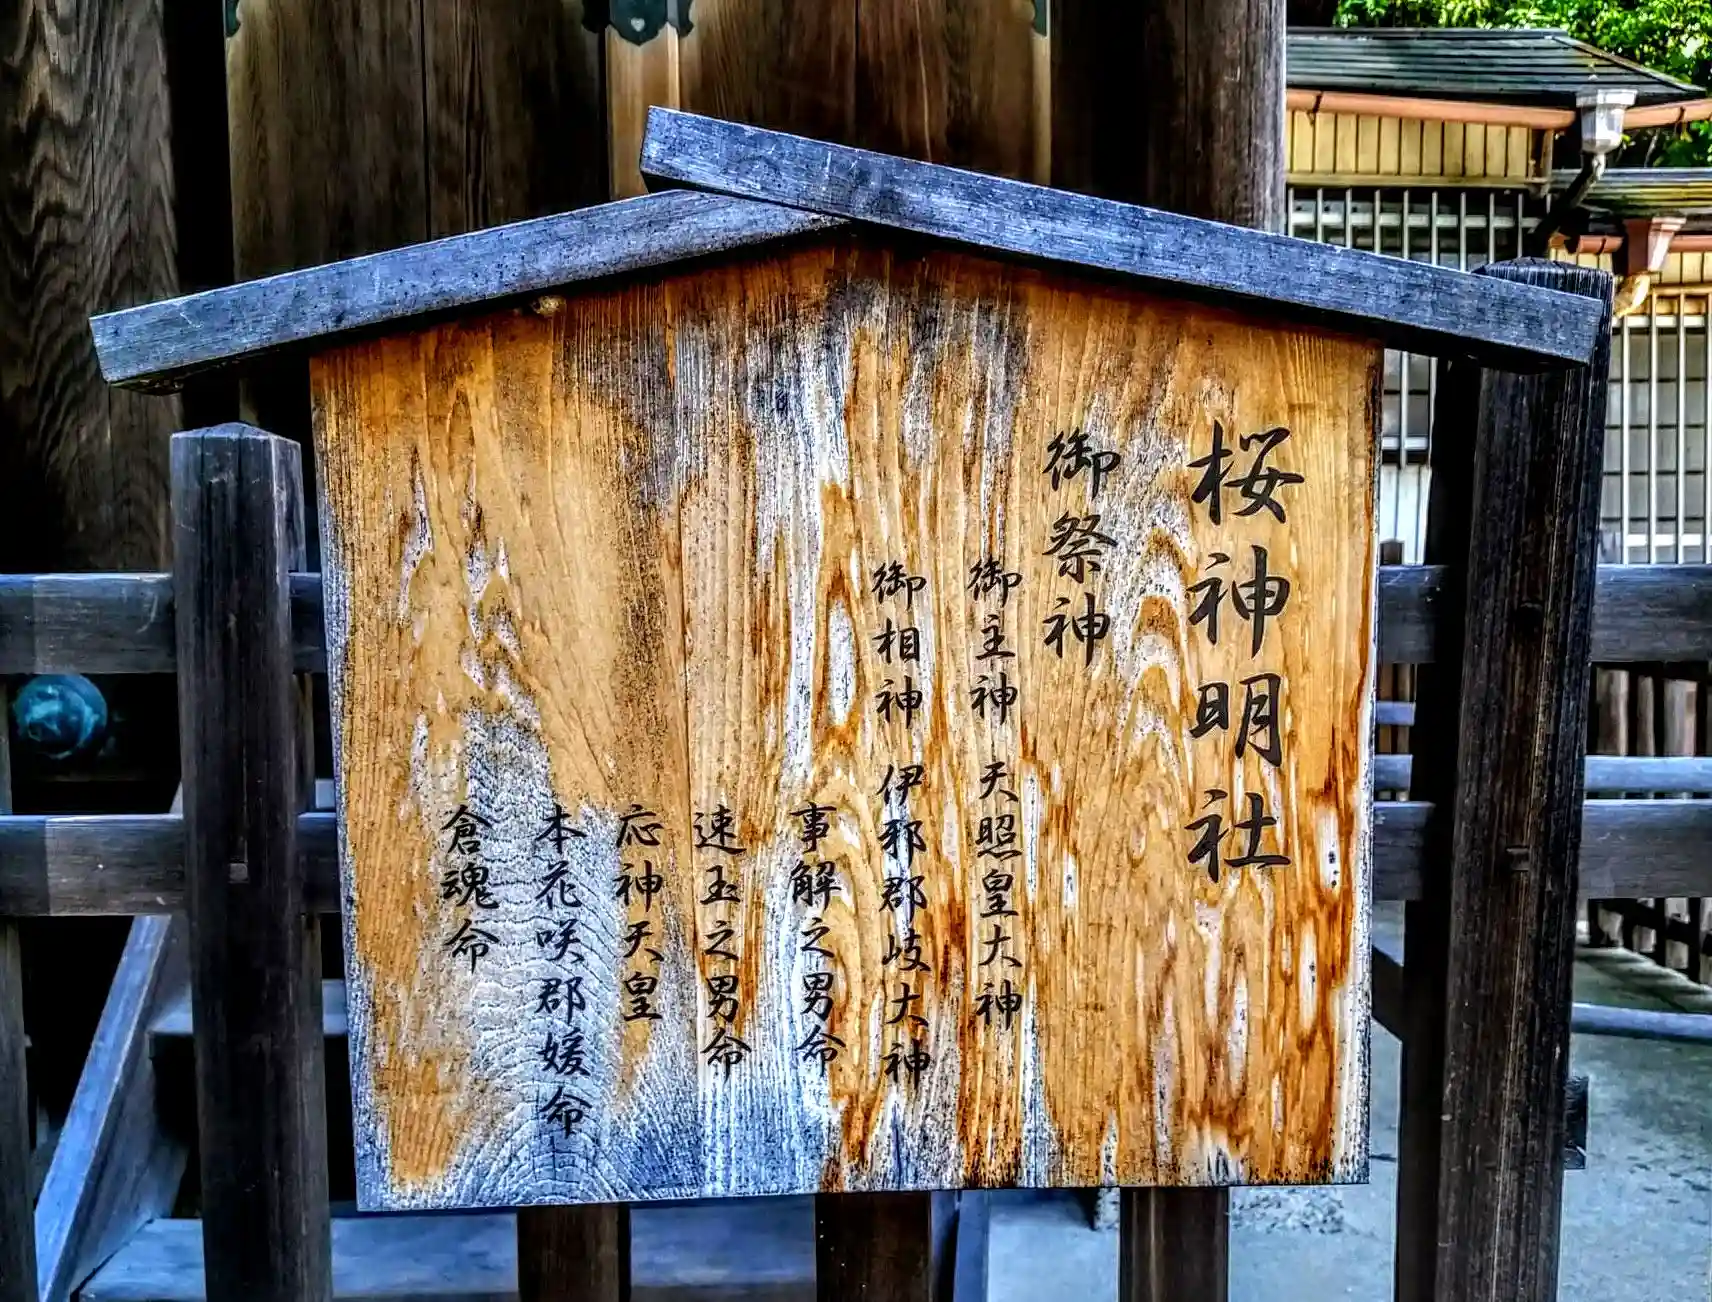 桜神明社
御祭神
御主神 天照皇大神
御相神 伊邪郡岐大神
事解之男命
速玉之男命
応神天皇
本花咲郡媛命
倉魂命